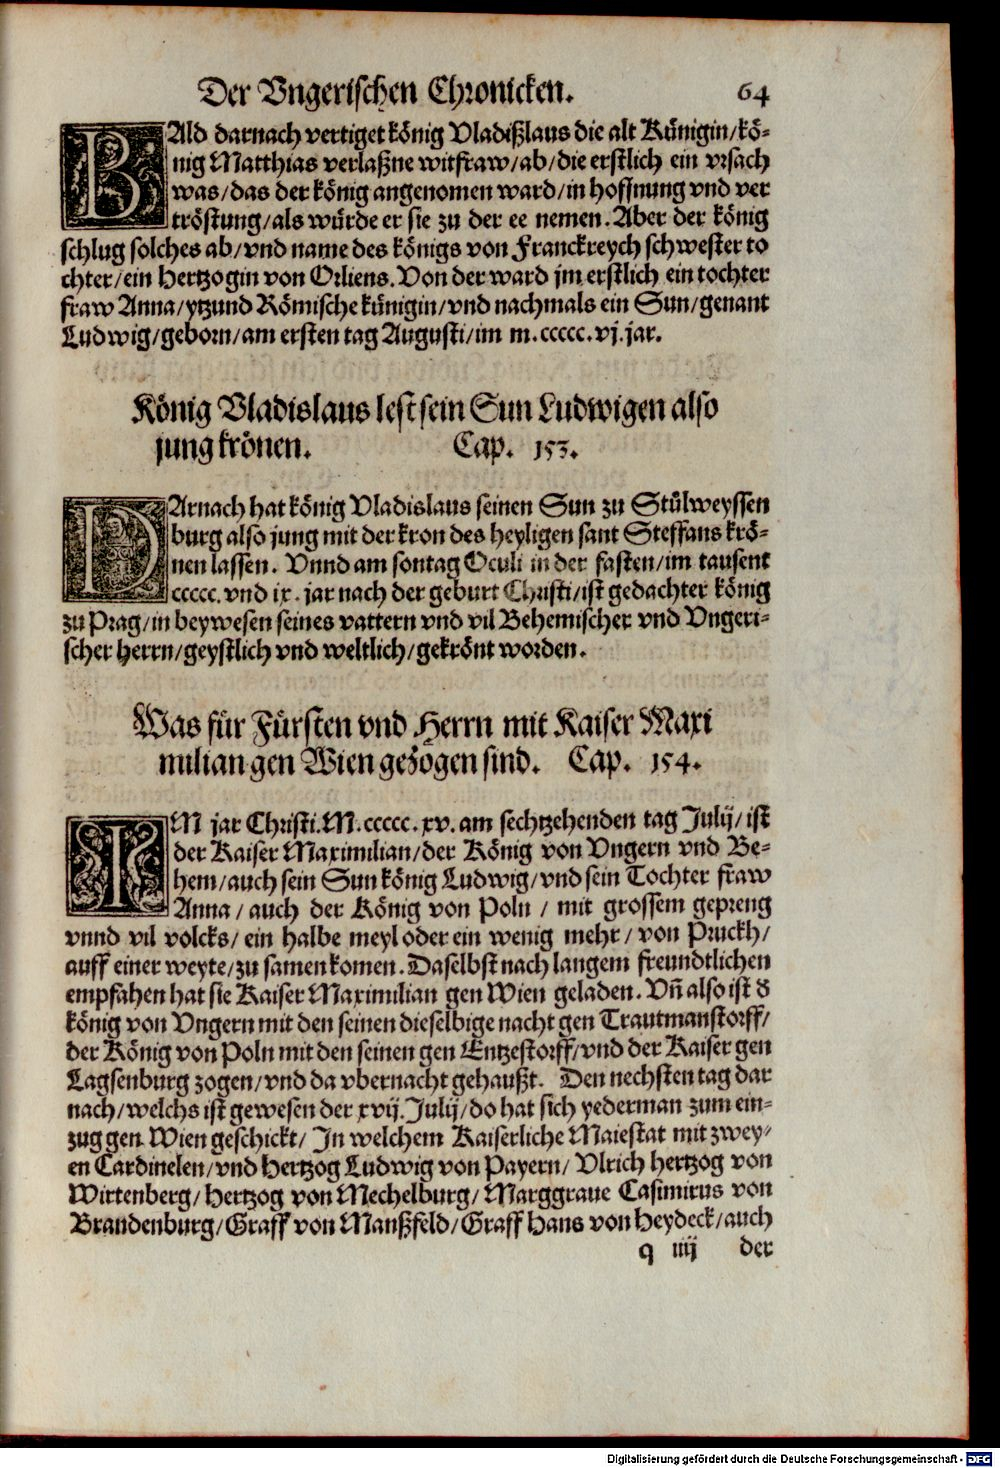 Der Vngerischen Chronicken. 64
BAld darnach vertiget könig Vladißlaus die alt Künigin/kö-
nig Matthias verlaßne witfraw/ab/die erstlich ein vrsach
was/das der könig angenomen ward/in hoffnung vnd ver
tröstung/als würde er sie zu der ee nemen. Aber der könig
schlug solches ab/vnd name des königs von Franckreych schwester to
chter/ein Hertzogin von Orliens. Von der ward jm erstlich ein tochter
fraw Anna/ytzund Römische künigin/vnd nachmals ein Sun/genant
Ludwig/geborn/am ersten tag Augusti/im m.ccccc.vj.jar.
König Vladislaus lest sein Sun Ludwigen also
jung krönen. Cap. 153.
DArnach hat könig Vladislaus seinen Sun zu Stülweyssen
burg also jung mit der kron des heyligen sant Steffans krö-
nen lassen. Vnnd am sontag Oculi in der fasten/im tausent
ccccc.vnd ix.jar nach der geburt Christi/ist gedachter könig
zu Prag/in beywesen seines vattern vnd vil Behemischer vnd Vngeri-
scher herrn/geystlich vnd weltlich/gekrönt worden.
Was für Fürsten vnd Herrn mit Kaiser Maxi
milian gen Wien gezogen sind. Cap. 154.
IM jar Christi.M.ccccc.xv.am sechtzehenden tag Julij/ist
der Kaiser Maximilian/der König von Vngern vnd Be-
hem/auch sein Sun könig Ludwig/vnd sein Tochter fraw
Anna/auch der König von Poln/mit grossem gepreng
vnnd vil volcks/ein halbe meyl oder ein wenig mehr/von Pruckh/
auff einer weyte/zu samen komen. Daselbst nach langem freundtlichen
empfahen hat sie Kaiser Maximilian gen Wien geladen. Vñ also ist d̕
könig von Vngern mit den seinen dieselbige nacht gen Trautmanstorff/
der König von Poln mit den seinen gen Entzestorff/vnd der Kaiser gen
Lagsenburg zogen/vnd da vbernacht gehaußt. Den nechsten tag dar
nach/welchs ist gewesen der xvij.Julij/do hat sich yederman zum ein-
zug gen Wien geschickt/In welchem Kaiserliche Maiestat mit zwey-
en Cardinelen/vnd Hertzog Ludwig von Payern/Vlrich hertzog von
Wirtenberg/Hertzog von Mechelburg/Marggraue Casimirus von
Brandenburg/Graff von Manßfeld/Graff Hans von Heydeck/auch
q iiij der
Digitalisierung gefördert durch die Deutsche Forschungsgemeinschaft - DFG